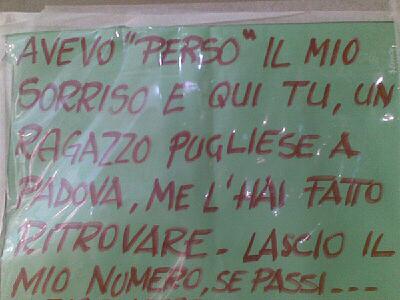 AVEVO "PERSO" IL MIO
SORRISO E QUI TU, UN
RAGAZZO PUGLIESE A
PADOVA, ME L'HAI FATTO
RITROVARE - LASCIO IL
MIO NUMERO, SE PASSI ---